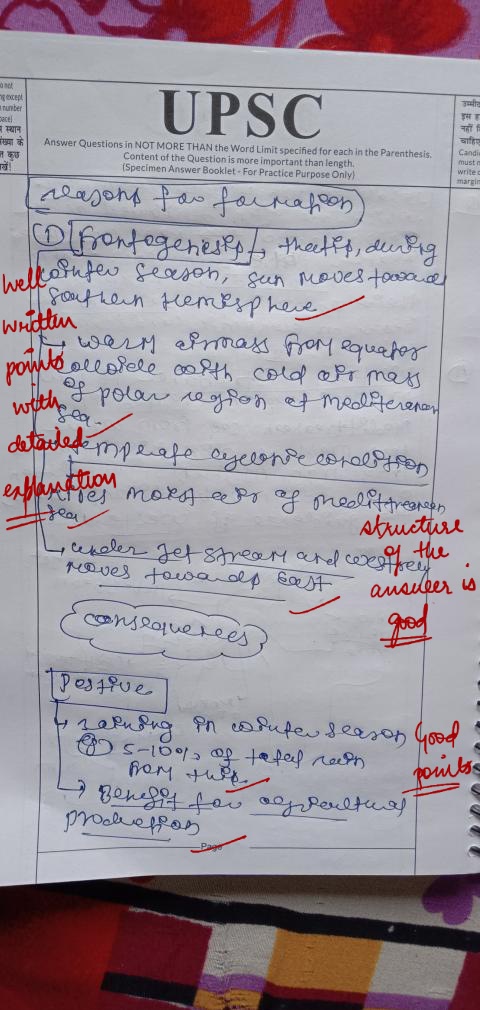 UPSC
Answer Questions in NOT MORE THAN the Word Limit specified for each in the Parenthesis.
Content of the Question is more important than length.
(Specimen Answer Booklet - For Practice Purpose Only)
reasons for formation
① Frontogenesis, thatis, during
winter season, sun moves toward
southern Hemisphere
warm airmass from equator
collide with cold air mass
of polar region at mediterranean
sea.
temperate cyclonic condition
moist air of mediterranean
sea
under Jet stream and westerly
moves towards East
well
written
points
with
detailed
explanation
structure
of the
answer is
good
consequences
Postive
raining in winter season
5-10% of total rain
from this
Benefit for agricultural
production
Good
points
Page